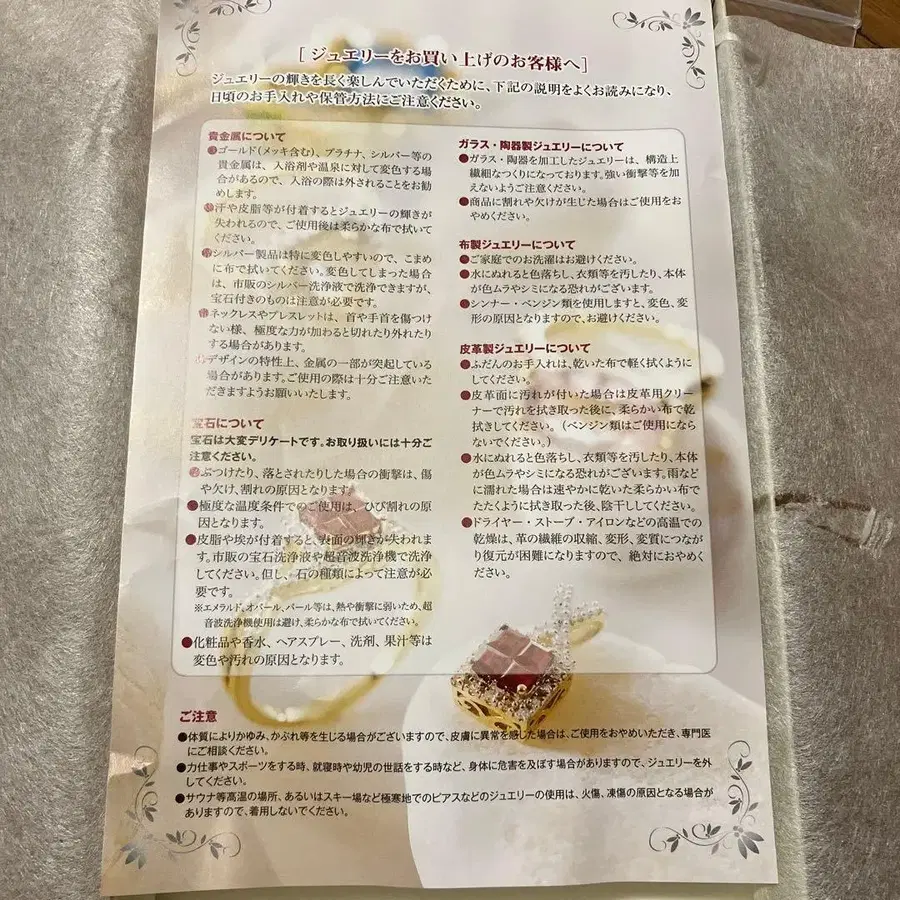 [ ジュエリーをお買い上げのお客様へ ]
ジュエリーの輝きを長く楽しんでいただくために、下記の説明をよくお読みになり、
日頃のお手入れや保管方法にご注意ください。
貴金属について
●ゴールド(メッキ含む)、プラチナ、シルバー等の
貴金属は、入浴剤や温泉に対して変色する場
合があるので、入浴の際は外されることをお勧
めします。
●汗や皮脂等が付着するとジュエリーの輝きが
失われるので、ご使用後は柔らかな布で拭いて
ください。
●シルバー製品は特に変色しやすいので、こまめ
に布で拭いてください。変色してしまった場合
は、市販のシルバー洗浄液で洗浄できますが、
宝石付きのものは注意が必要です。
●ネックレスやブレスレットは、首や手首を傷つけ
ない様、極度な力が加わると切れたり外れたり
する場合があります。
●デザインの特性上、金属の一部が突起している
場合があります。ご使用の際は十分ご注意いた
だきますようお願いいたします。
宝石について
宝石は大変デリケートです。お取り扱いには十分ご
注意ください。
●ぶつけたり、落とされたりした場合の衝撃は、傷
や欠け、割れの原因となります。
●極度な温度条件でのご使用は、ひび割れの原
因となります。
●皮脂や埃が付着すると、表面の輝きが失われま
す。市販の宝石洗浄液や超音波洗浄機で洗浄
してください。但し、石の種類によって注意が必
要です。
※エメラルド、オパール、パール等は、熱や衝撃に弱いため、超
音波洗浄機使用は避け、柔らかな布で拭いてください。
●化粧品や香水、ヘアスプレー、洗剤、果汁等は
変色や汚れの原因となります。
ガラス・陶器製ジュエリーについて
●ガラス・陶器を加工したジュエリーは、構造上
繊細なつくりになっております。強い衝撃等を加
えないようご注意ください。
●商品に割れや欠けが生じた場合はご使用をお
やめください。
布製ジュエリーについて
●ご家庭でのお洗濯はお避けください。
●水にぬれると色落ちし、衣類等を汚したり、本体
が色ムラやシミになる恐れがございます。
●シンナー・ベンジン類を使用しますと、変色、変
形の原因となりますので、お避けください。
皮革製ジュエリーについて
●ふだんのお手入れは、乾いた布で軽く拭くように
してください。
●皮革面に汚れが付いた場合は皮革用クリー
ナーで汚れを拭き取った後に、柔らかい布で乾
拭きしてください。(ベンジン類はご使用になら
ないでください。)
●水にぬれると色落ちし、衣類等を汚したり、本体
が色ムラやシミになる恐れがございます。雨など
に濡れた場合は速やかに乾いた柔らかい布で
たたくように拭き取った後、陰干ししてください。
●ドライヤー・ストーブ・アイロンなどの高温での
乾燥は、革の繊維の収縮、変形、変質につなが
り復元が困難になりますので、絶対におやめく
ださい。
ご注意
●体質によりかゆみ、かぶれ等を生じる場合がございますので、皮膚に異常を感じた場合は、ご使用をおやめいただき、専門医
にご相談ください。
●力仕事やスポーツをする時、就寝時や幼児の世話をする時など、身体に危害を及ぼす場合がありますので、ジュエリーを外
してください。
●サウナ等高温の場所、あるいはスキー場など極寒地でのピアスなどのジュエリーの使用は、火傷、凍傷の原因となる場合が
ありますので、着用しないでください。